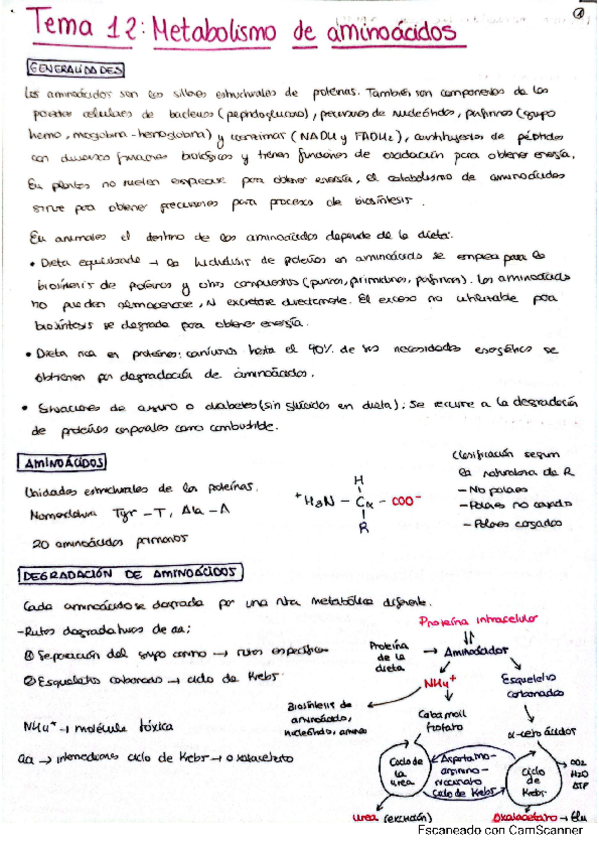 Tema 12: Metabolismo de aminoácidos
①
GENERALIDADES
Los aminoácidos son las sillares estructurales de proteínas. También son componentes de las
paredes celulares de bacterias (peptidoglucano), precursores de nucleótidos, porfirinas (grupo
hemo, mioglobina-hemoglobina) y coenzimas (NADH y FADH₂), constituyentes de péptidos
con diversas funciones biológicas y tienen funciones de oxidación para obtener energía.
En plantas no suelen emplearse para obtener energía, el catabolismo de aminoácidos
sirve para obtener precursores para procesos de biosíntesis.
En animales el destino de los aminoácidos depende de la dieta:
• Dieta equilibrada → la hidrólisis de proteínas en aminoácidos se emplea para la
biosíntesis de proteínas y otros compuestos (purinas, pirimidinas, porfirinas). Los aminoácidos
no pueden almacenarse, ni excretarse directamente. El exceso no utilizable para
biosíntesis se degrada para obtener energía.
• Dieta rica en proteínas: carnívoros hasta el 40% de las necesidades energéticas se
obtienen por degradación de aminoácidos.
• Situaciones de ayuno o diabetes (sin glúcidos en dieta): Se recurre a la degradación
de proteínas corporales como combustible.
AMINOÁCIDOS
Unidades estructurales de las proteínas.
Nomenclatura Tyr – T, Ala – A
20 aminoácidos primarios
H
⁺H₃N – Cα – COO⁻
R
Clasificación según
la naturaleza de R
– No polares
– Polares no cargados
– Polares cargados
DEGRADACIÓN DE AMINOÁCIDOS
Cada aminoácido se degrada por una ruta metabólica diferente.
-Rutas degradativas de aa:
① Separación del grupo amino → rutas específicas
② Esqueletos carbonados → ciclo de Krebs
NH₄⁺ → molécula tóxica
aa → intermediarios ciclo de Krebs → oxalacetato
Proteína intracelular
Proteína
de la
dieta
→ Aminoácidos
NH₄⁺
Esqueletos
carbonados
Biosíntesis de
aminoácidos,
nucleótidos, aminas
Cabamoil
fosfato
α-cetoácidos
Ciclo de
la
urea
Aspartamo-
arginino-
succinato
Ciclo de Krebs
Ciclo
de
Krebs
CO₂
H₂O
ATP
Urea (excreción)
Oxalacetato → Glu
Escaneado con CamScanner